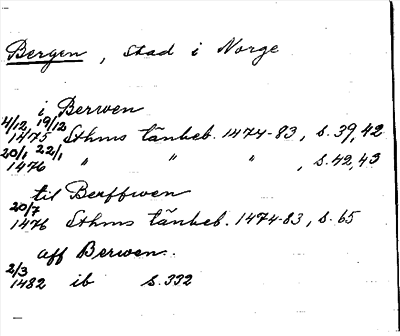 Bergen, stad i Norge
i Berwen
4/12, 19/12
1475 Sthms tänkeb. 1474-83, s. 39, 42
20/1 22/1
1476 " " " , s. 42, 43
til Berffwen
20/7
1476 Sthms tänkeb. 1474-83, s. 65
aff Berwen.
2/3
1482 ib s. 332